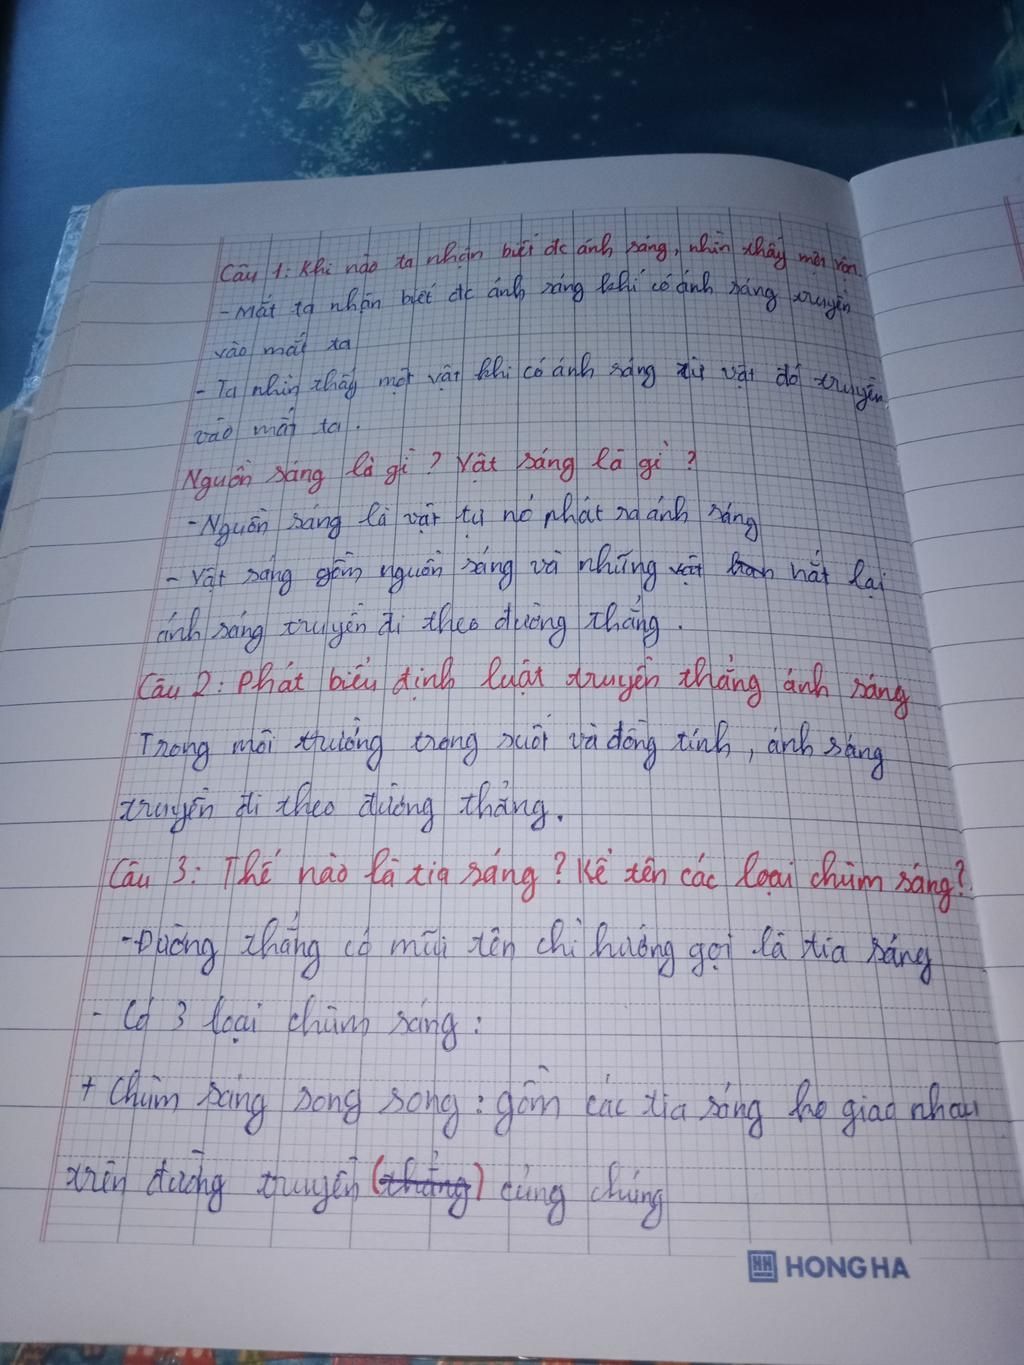 Câu 1: Khi nào ta nhận biết đc ánh sáng, nhìn thấy một vật.
- Mắt ta nhận biết đc ánh sáng khi có ánh sáng truyền
vào mắt ta
- Ta nhìn thấy một vật khi có ánh sáng từ vật đó truyền
vào mắt ta.
Nguồn sáng là gì ? Vật sáng là gì ?
- Nguồn sáng là vật tự nó phát ra ánh sáng
- Vật sáng gồm nguồn sáng và những vật hắt lại
ánh sáng truyền đi theo đường thẳng.
Câu 2: Phát biểu định luật truyền thẳng ánh sáng
Trong môi trường trong suốt và đồng tính, ánh sáng
truyền đi theo đường thẳng.
Câu 3: Thế nào là tia sáng ? Kể tên các loại chùm sáng?
- Đường thẳng có mũi tên chỉ hướng gọi là tia sáng
- Có 3 loại chùm sáng:
+ Chùm sáng song song: gồm các tia sáng ko giao nhau
trên đường truyền (thẳng) củng chúng
HH HONG HA